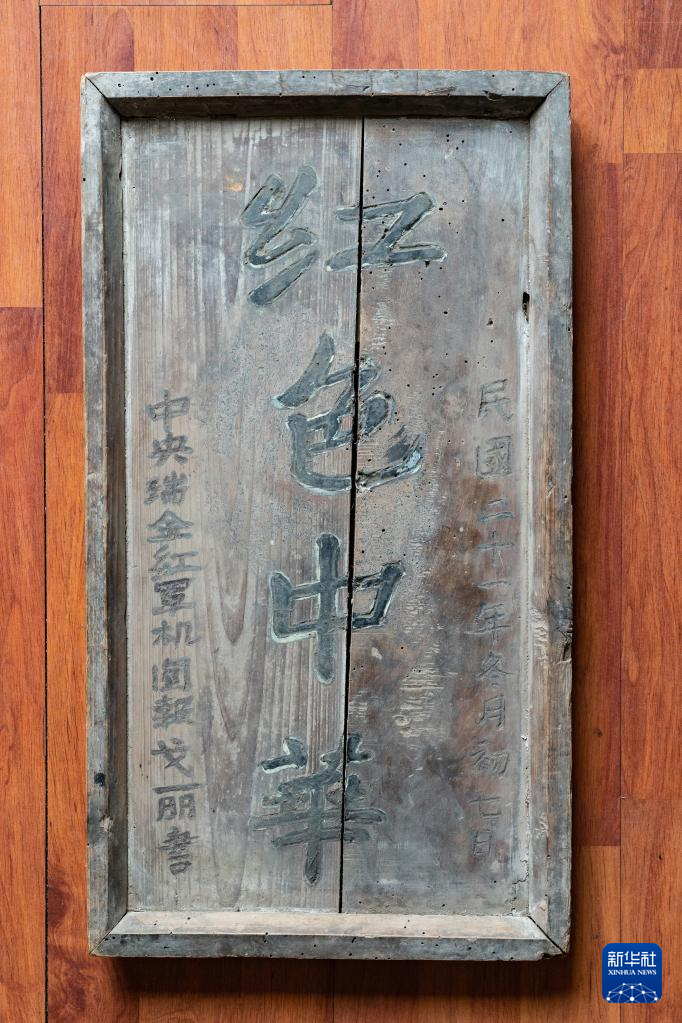 民國二十一年冬月初七日
红色中華
中央瑞金红军机関報戈丽書
新华社
XINHUA NEWS